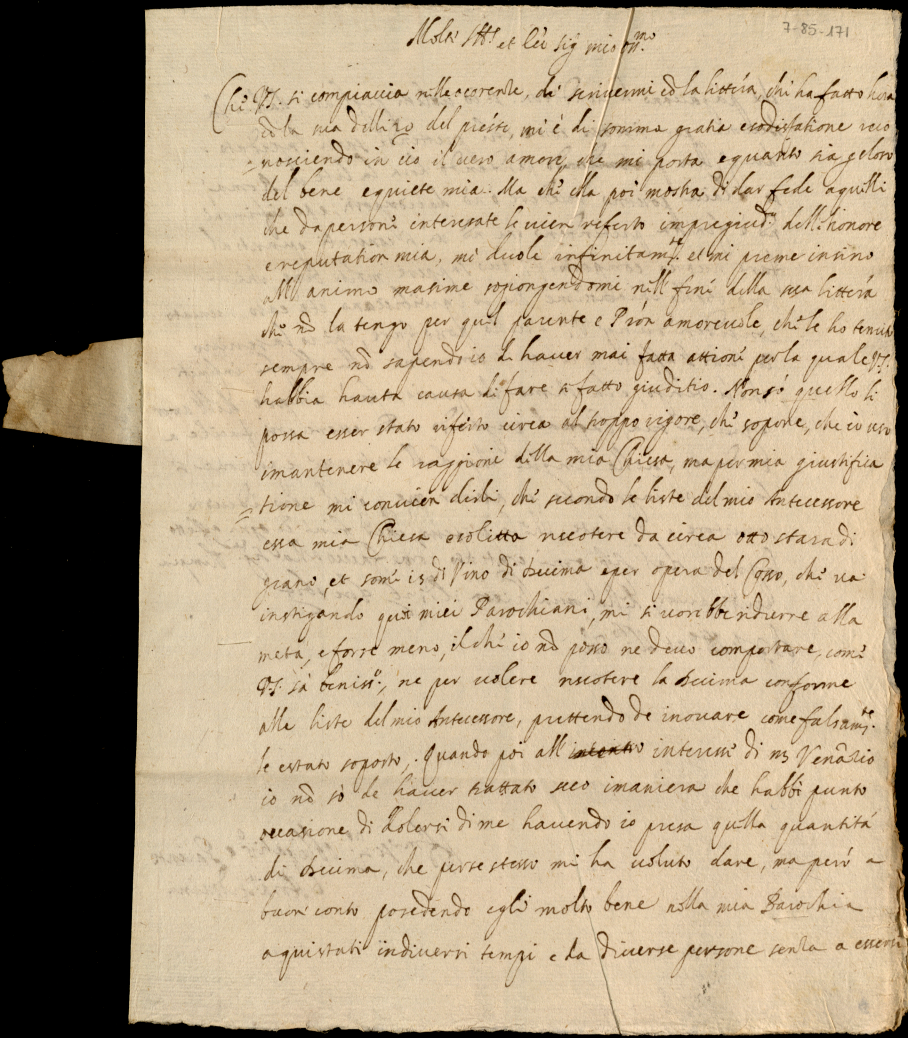 7-85-171
Molt' Ill.e et Ecc. sig mio oss.mo
Che V.S. si compiaccia nelle ocorenze, di scrivermi cō la littera, che ha fatto hora
cō la sua delli 20 del preste, mi è di somma gratia e sodisfatione reco
=nosciendo in ciò il vero amore, che mi porta e quanto sia geloso
del bene e quiete mia. Ma che ella poi mostra di dar fede a quelli
che da persone interesate le vien referto impregiud.o dell'honore
e reputation mia, mi duole infinitam.te et mi preme insino
all animo masime sogiongendomi nell fine della ssa littera
che nō la tengo per quel parente e Prōn amorevole, che le ho tenuto
sempre nō sapendo io di haver mai fatta attione per la quale V.S.
habbia hauta causa di fare si fatto giuditio. Non só quello li
possa esser stato riferto circa al troppo rigore, che sopone, che io uso
imantenere le raggione della mia Chiesa, ma per mia giustifica
=tione mi convien dirli, che secondo le liste del mio Antecessore
essa mia Chiesa è solitta riscotere da circa otto stara di
grani, et some 15 di Vino di decima e per opera del Cosso, che va
instigando qui miei Parochiani, mi si vorebbe ridurre alla
metà, e forse meno, il che io nō posso ne devo comportare, come
V.S. sà beniss.o, ne per volere riscotere la decima conforme
alle liste del mio Antecessore, prettendo de inovare come falsam.te
le è stato soposto. Quando poi all' interesse di ms Venāzio
io nō sò de haver trattato seco imaniera che habbi punto
occasione di dolersi di me havendo io presa quella quantità
di decima, che perse stesso mi ha voluto dare, ma però a
buon conto posedendo egli molto bene nella mia Parochia
aquistati in diversi tempi e da diverse persone senza a essersi